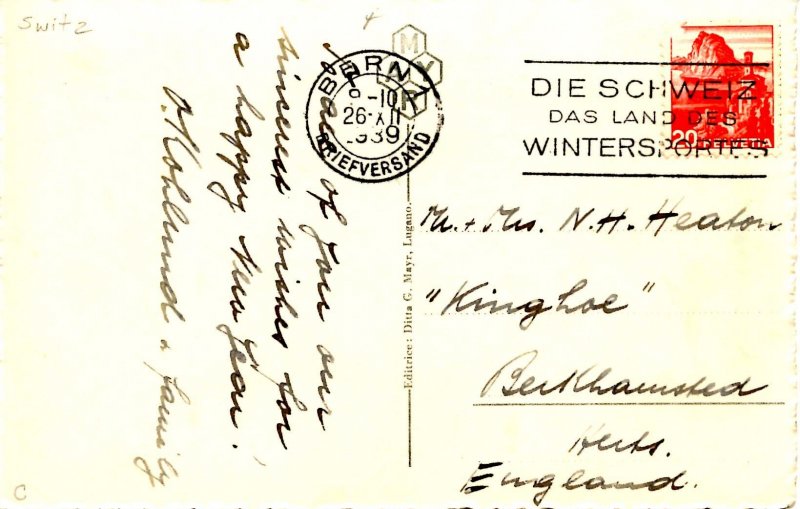 Switz
MYR
BERN 1
-10
26.XII
1939
BRIEFVERSAND
DIE SCHWEIZ
DAS LAND DES
WINTERSPORTES
20 HELVETIA
of you our
sincerest wishes for
a happy New Year!
& family
Editrice: Ditta G. Mayr, Lugano.
M. + Mrs. N. H. Heaton
"Kinghoe"
Berkhamsted
Herts.
England.
C